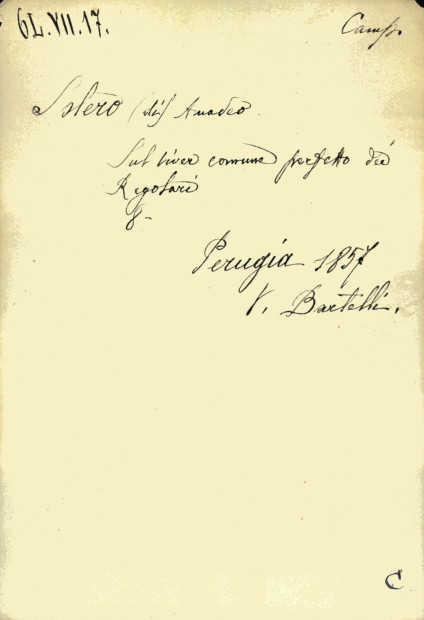 6L.VII.17.
Camp.
Solero (di) Amadeo.
Sul viver comune perfetto dei
Regolari
8-
Perugia 1857
V. Bartelli.
C